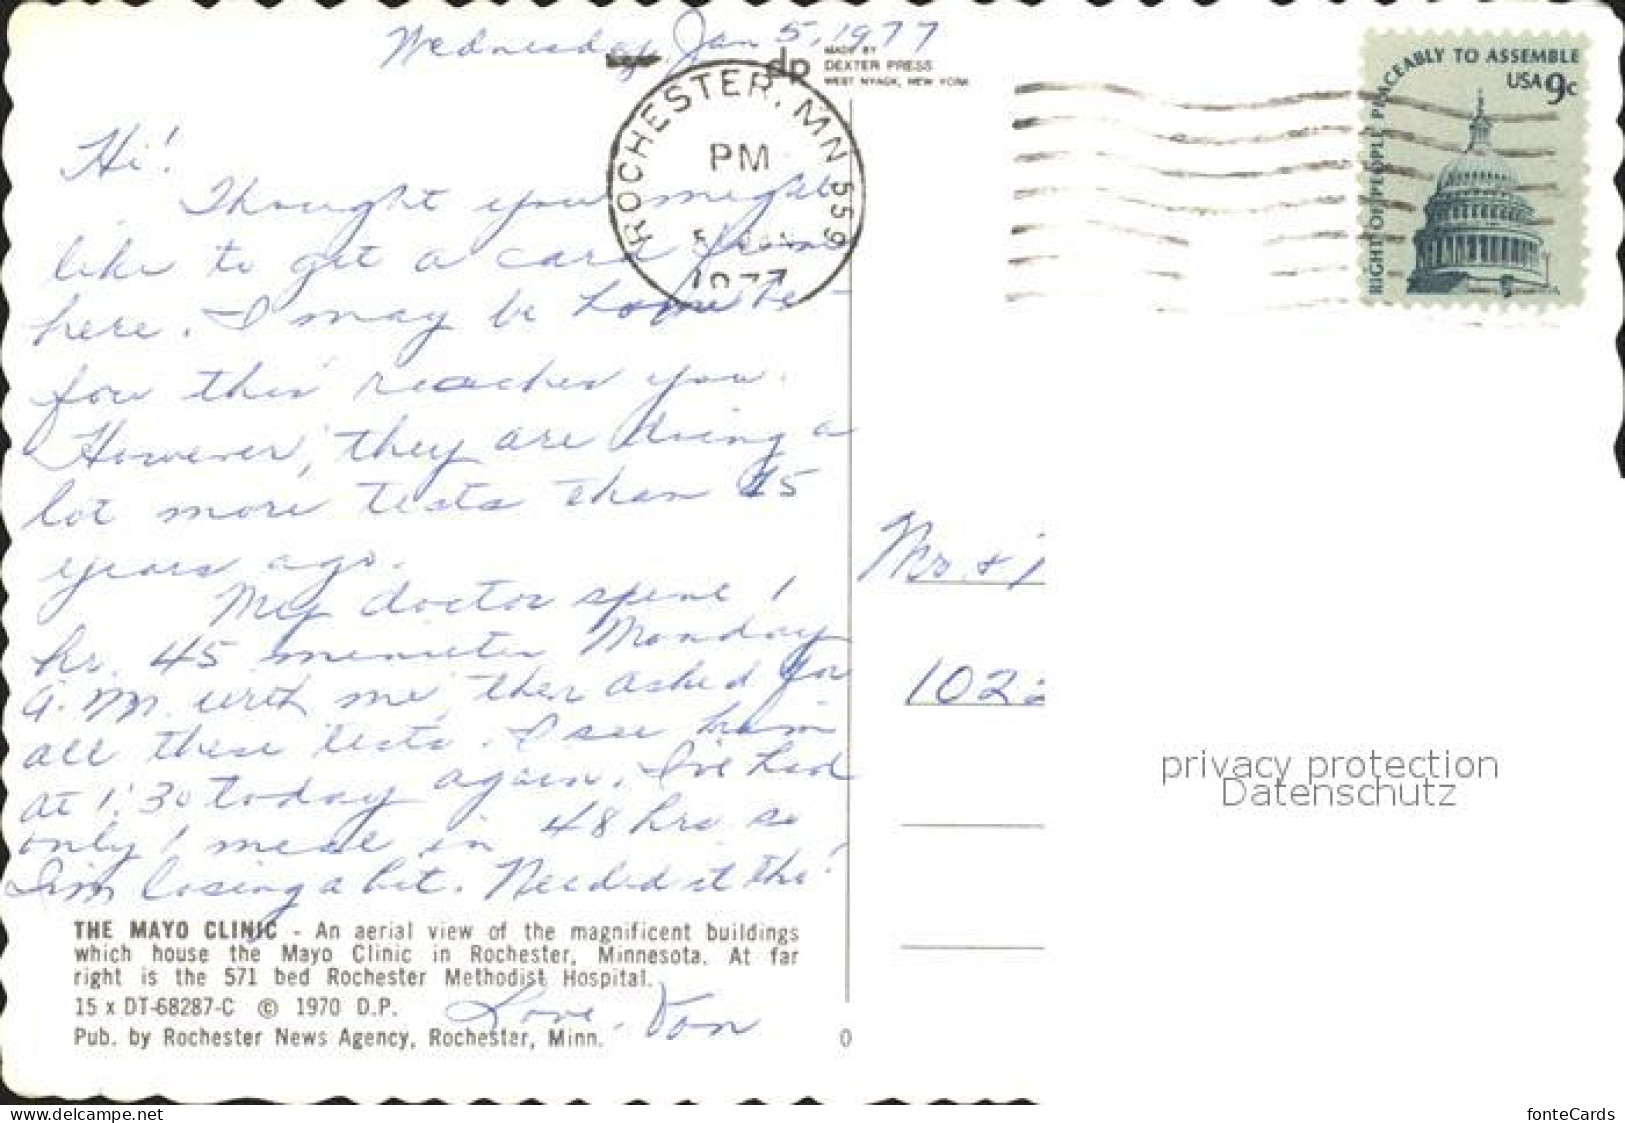 Wednesday Jan 5, 1977
dp
MADE BY
DEXTER PRESS
WEST NYACK, NEW YORK
ROCHESTER, MN 559
PM
5
1977
RIGHT OF PEOPLE PEACEABLY TO ASSEMBLE
USA 9c
Hi!
Thought you might
like to get a card from
here. I may be home be-
fore this reaches you.
However, they are doing a
lot more tests than 15
years ago.
My doctor spent 1
hr. 45 minutes Monday
A.M. with me, then asked for
all these tests. I see him
at 1:30 today again. I've had
only 1 meal in 48 hrs so
I'm losing a bit. Needed it tho!
Love, Von
Mrs. &
102
THE MAYO CLINIC - An aerial view of the magnificent buildings
which house the Mayo Clinic in Rochester, Minnesota. At far
right is the 571 bed Rochester Methodist Hospital.
15 x DT-68287-C © 1970 D.P.
Pub. by Rochester News Agency, Rochester, Minn.
0
privacy protection
Datenschutz
www.delcampe.net
fonteCards